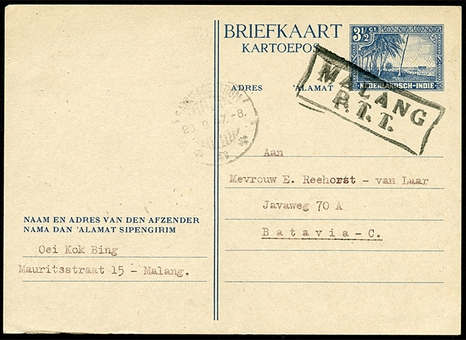 BRIEFKAART
KARTOEPOS
3½ CT
NEDERLANDSCH-INDIE
MALANG
P.T.T.
ADRES 'ALAMAT
Aan
Mevrouw E. Reehorst - van Laar
Javaweg 70 A
Batavia-C.
NAAM EN ADRES VAN DEN AFZENDER
NAMA DAN 'ALAMAT SIPENGIRIM
Oei Kok Bing
Mauritsstraat 15 - Malang.